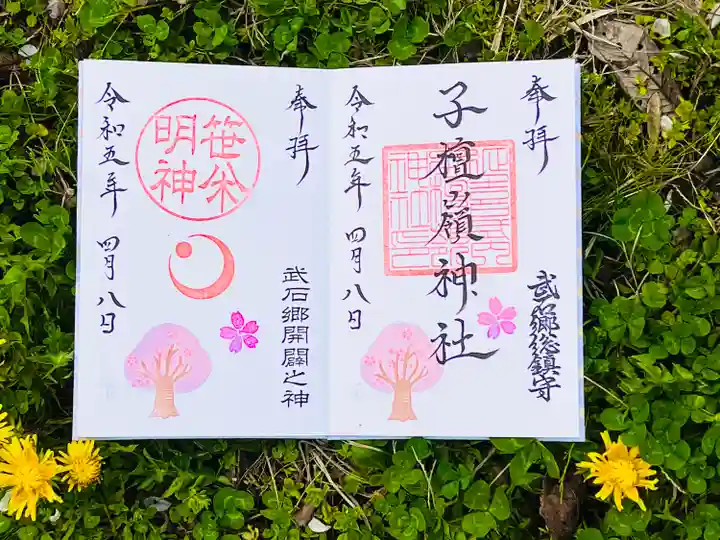 奉拝
武石郷総鎮守
子檀嶺神社
令和五年 四月八日
奉拝
武石郷開闢之神
笹焼
明神
令和五年 四月八日